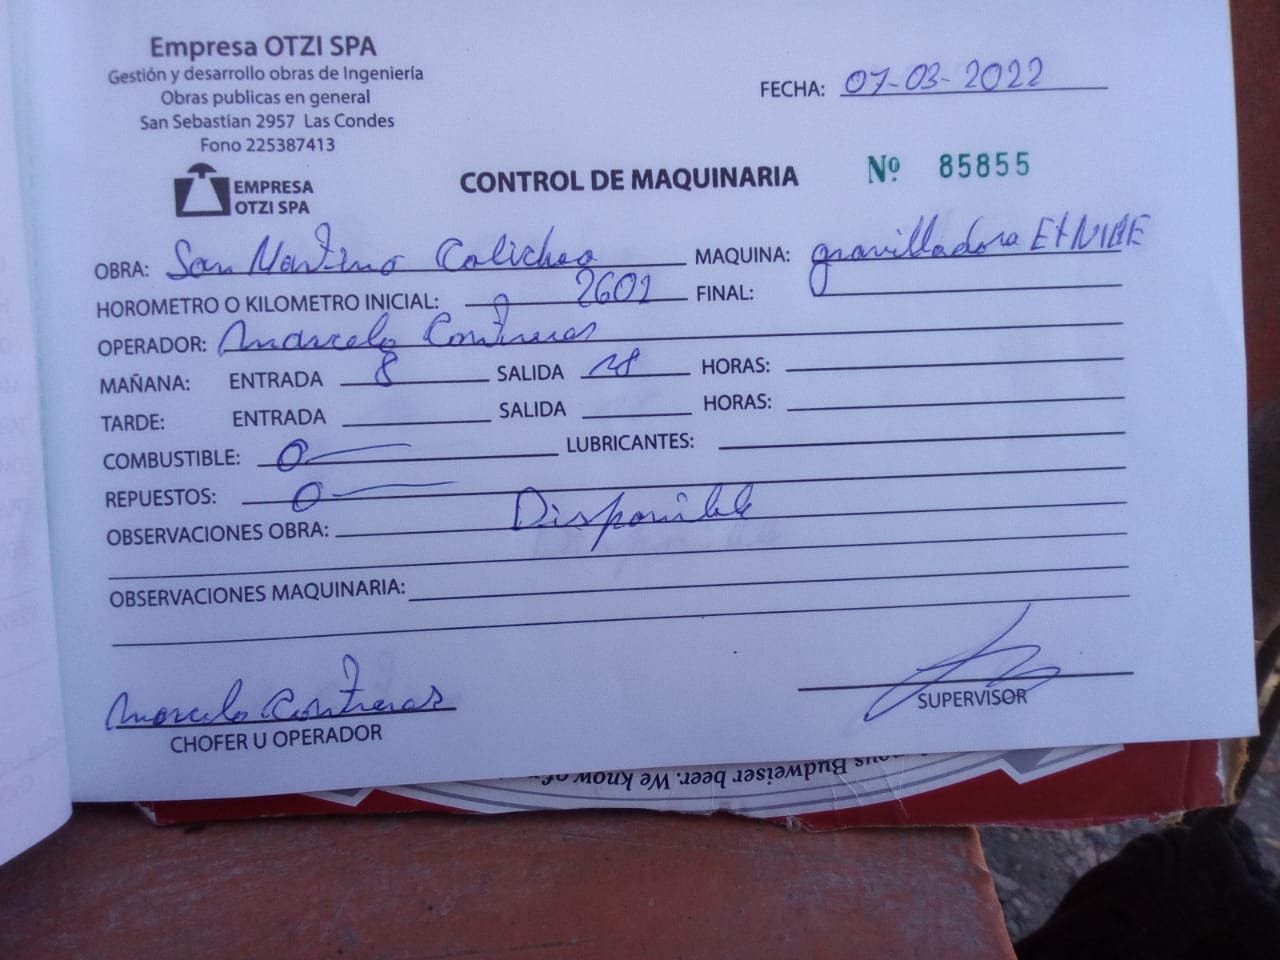 Empresa OTZI SPA
Gestión y desarrollo obras de Ingeniería
Obras publicas en general
San Sebastian 2957 Las Condes
Fono 225387413
EMPRESA
OTZI SPA
FECHA: 07-03-2022
CONTROL DE MAQUINARIA Nº 85855
OBRA: San Martino Colicheo MAQUINA: gravilladora
HOROMETRO O KILOMETRO INICIAL: 2602 FINAL:
OPERADOR: Marcelo Contreras
MAÑANA: ENTRADA 8 SALIDA 18 HORAS:
TARDE: ENTRADA SALIDA HORAS:
COMBUSTIBLE: 0 LUBRICANTES:
REPUESTOS: 0
OBSERVACIONES OBRA: Disponible
OBSERVACIONES MAQUINARIA:
Marcelo Contreras
CHOFER U OPERADOR
SUPERVISOR
Budweiser beer. We know of